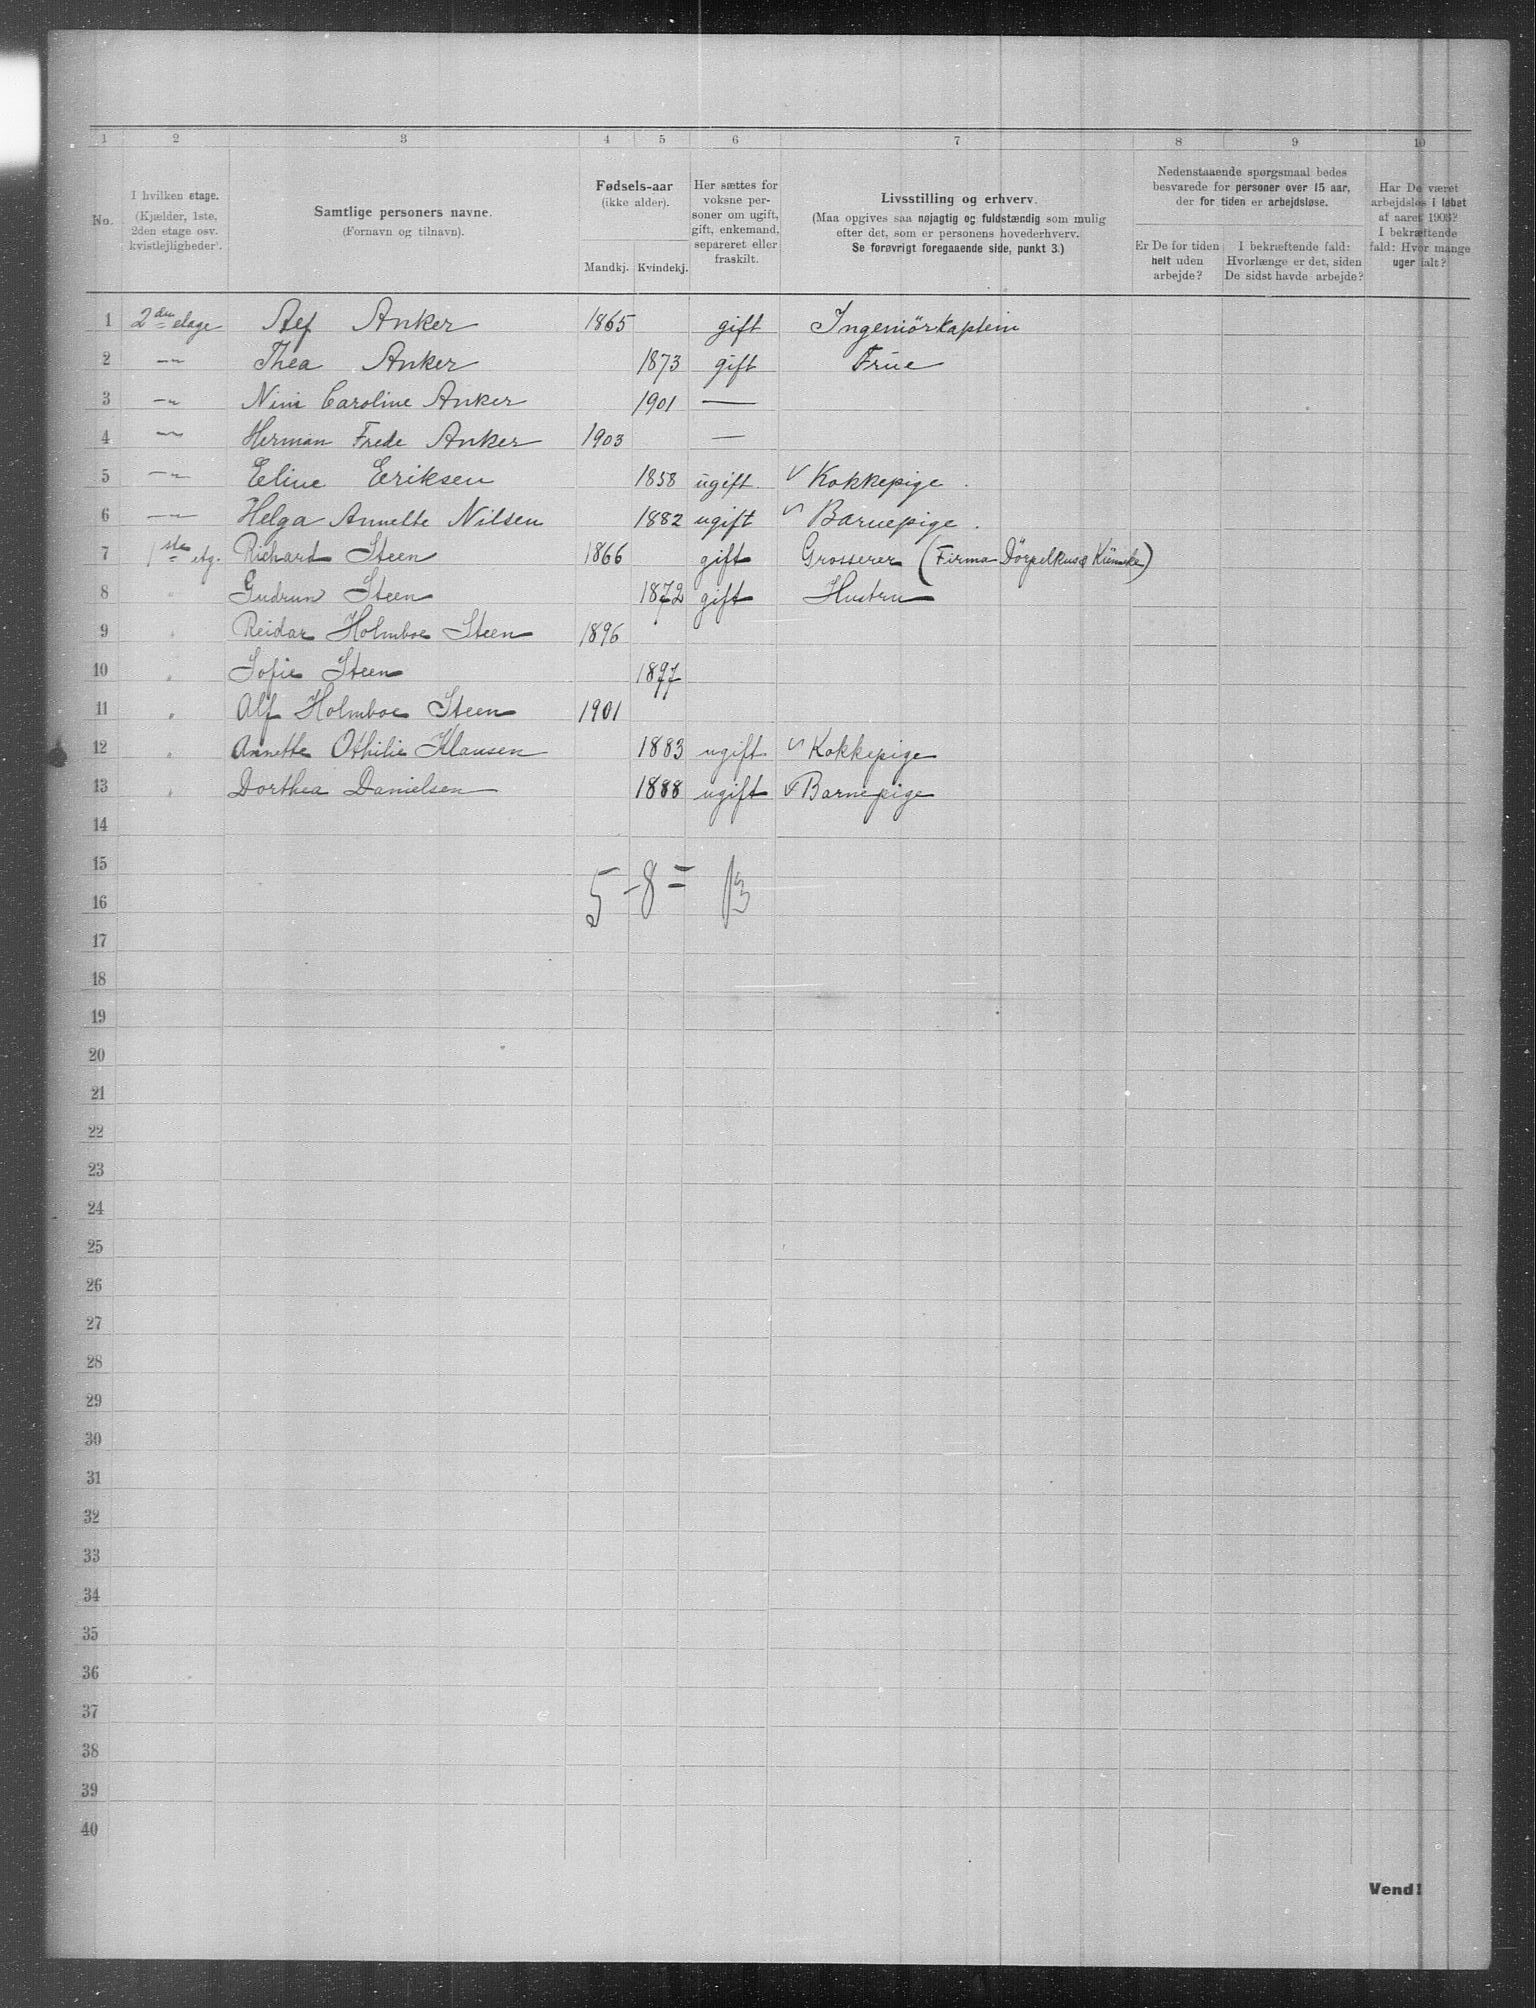 1 2 3 4 5 6 7 8 9 10
No. I hvilken etage. (Kjælder, 1ste, 2den etage osv. kvistlejligheder). Samtlige personers navne. (Fornavn og tilnavn). Fødsels-aar (ikke alder). Mandkj. Kvindekj. Her sættes for voksne personer om ugift, gift, enkemand, separeret eller fraskilt. Livsstilling og erhverv. (Maa opgives saa nøjagtig og fuldstændig som mulig efter det, som er personens hovederhverv. Se forøvrigt foregaaende side, punkt 3.) Nedenstaaende spørgsmaal bedes besvarede for personer over 15 aar, der for tiden er arbejdsløse. Er De for tiden helt uden arbejde? I bekræftende fald: Hvorlænge er det, siden De sidst havde arbejde? Har De været arbejdsløs i løbet af aaret 1903? I bekræftende fald: Hvor mange uger ialt?
1 2den etage Alf Anker 1865 gift Ingeniörkaptein
2 -"- Thea Anker 1873 gift Frue
3 -"- Nini Caroline Anker 1901 —
4 -"- Herman Frede Anker 1903 —
5 -"- Eline Eriksen 1858 ugift Kokkepige.
6 -"- Helga Annette Nilsen 1882 ugift Barnepige.
7 1ste etg. Richard Steen 1866 gift Grosserer (Firma Dörpelkus &
8 " Gudrun Steen 1872 gift Hustru
9 " Reidar Holmboe Steen 1896
10 " Sofie Steen 1897
11 " Alf Holmboe Steen 1901
12 " Annette Othilie Klausen 1883 ugift Kokkepige
13 " Dorthea Danielsen 1888 ugift Barnepige
14
15
16 5 - 8 = 13
17
18
19
20
21
22
23
24
25
26
27
28
29
30
31
32
33
34
35
36
37
38
39
40
Vend!